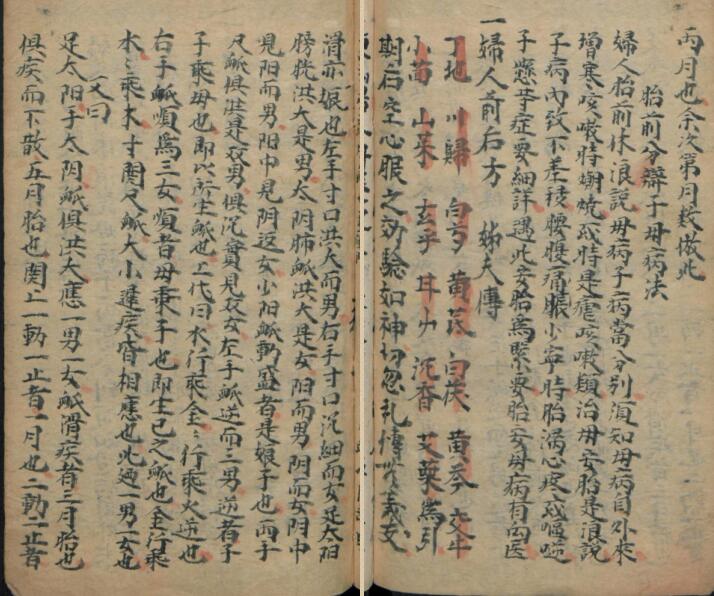 兩月也余次第月数倣此
胎前分辯子母病法
婦人胎前休浪說母病子病當分别須知母病自外來
增寒咳嗽時潮燒或時是瘧咳嗽類治母安胎是浪說
子病內致不差移腰腹痛脹少寧時胎满心疼或嘔逆
子懸等症要細詳遇此安胎為緊要胎安母病有良医
一婦人前后方　姊夫傳
丁地　川歸　白芍　黄芪　白茯　黄芩
小茴　山茱　玄乎　甘草　沉香　艾葉為引
對石空心服之効驗如神切忽乱傳
滑亦娠也左手寸口洪大而男右手寸口沉細而女足太阳
膀胱洪大是男太阴肺䘑洪大是女阳而男阴而女阴中
見阳而男阳中見阴返女少阳䘑動盛者是娘子也两手
尺䘑俱洪是双男俱沉實見双女左手䘑逆而三男逆者子
子乘母也即以所生䘑也上代曰水行乘金〻行乘火逆也
右手䘑順為三女順者母乗子也即生己之䘑也金行乘
水〻乘木寸関尺䘑大小遲疾皆相應也此廼一男一女也
又曰
足太阳手太阴䘑俱洪大應一男一女䘑滑疾者三月胎也
俱疾而不散五月胎也関上一動一止者一月也二動二止者